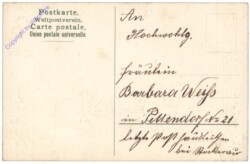 Postkarte.
Weltpostverein.
Carte postale.
Union postale universelle.
An
Hochwohlg.
Fräulein
Barbara Weiß
in Pettendorf No 21
letzte Post
bei Stockerau